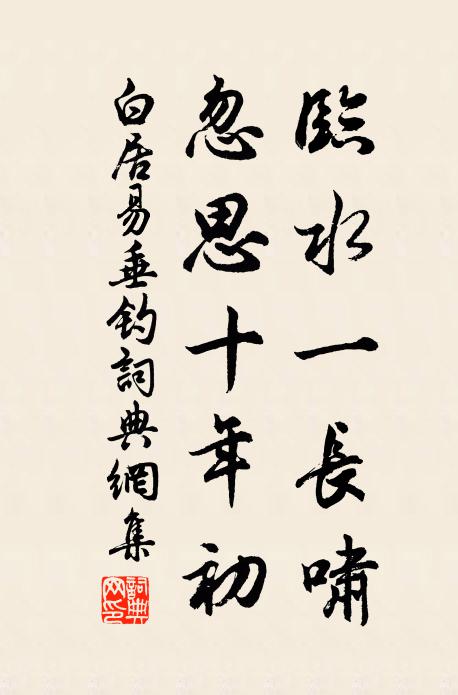 臨水一長嘯
忽思十年初
白居易垂釣詞典網集
詞典網印